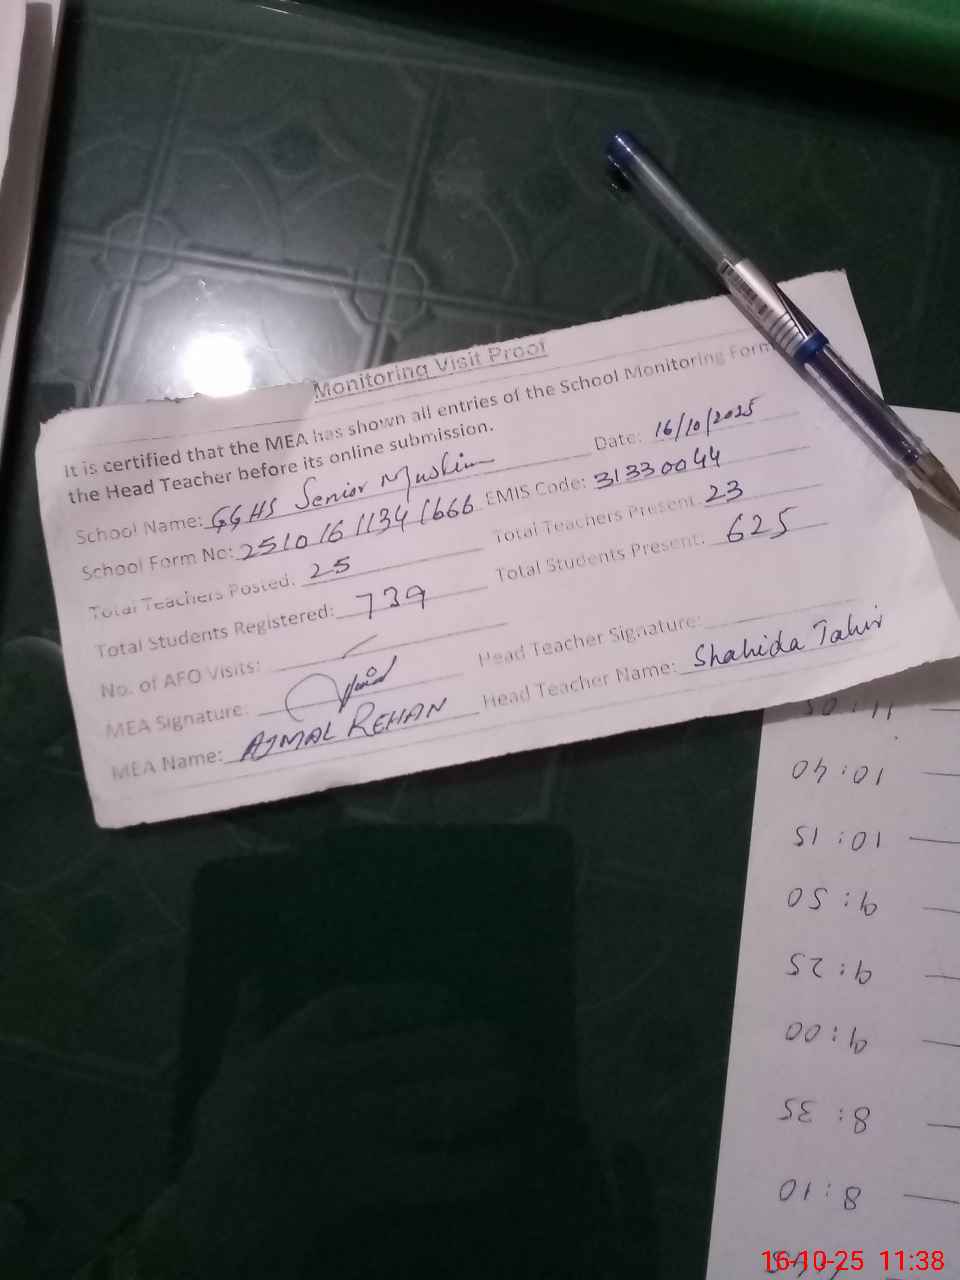 Monitoring Visit Proof
It is certified that the MEA has shown all entries of the School Monitoring Form
the Head Teacher before its online submission.
Date: 16/10/2025
School Name: GGHS Senior Muslim
School Form No: 25101611341666 EMIS Code: 31330044
Total Teachers Posted: 25 Total Teachers Present: 23
Total Students Registered: 739 Total Students Present: 625
No. of AFO Visits:
MEA Signature: Head Teacher Signature:
MEA Name: AJMAL REHAN Head Teacher Name: Shahida Tahir
8:10
8:35
9:00
9:25
9:50
10:15
10:40
11:05
16-10-25 11:38